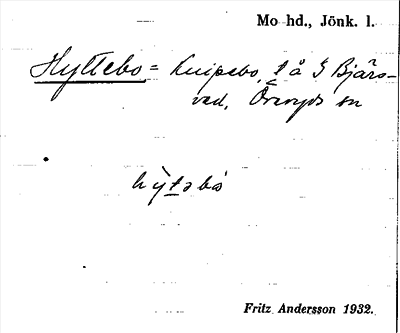 Mo hd., Jönk. l.
Hyttebo = Knipebo, t å S Bjärs-
ved, Öreryds sn
hy̆təbo
Fritz Andersson 1932.